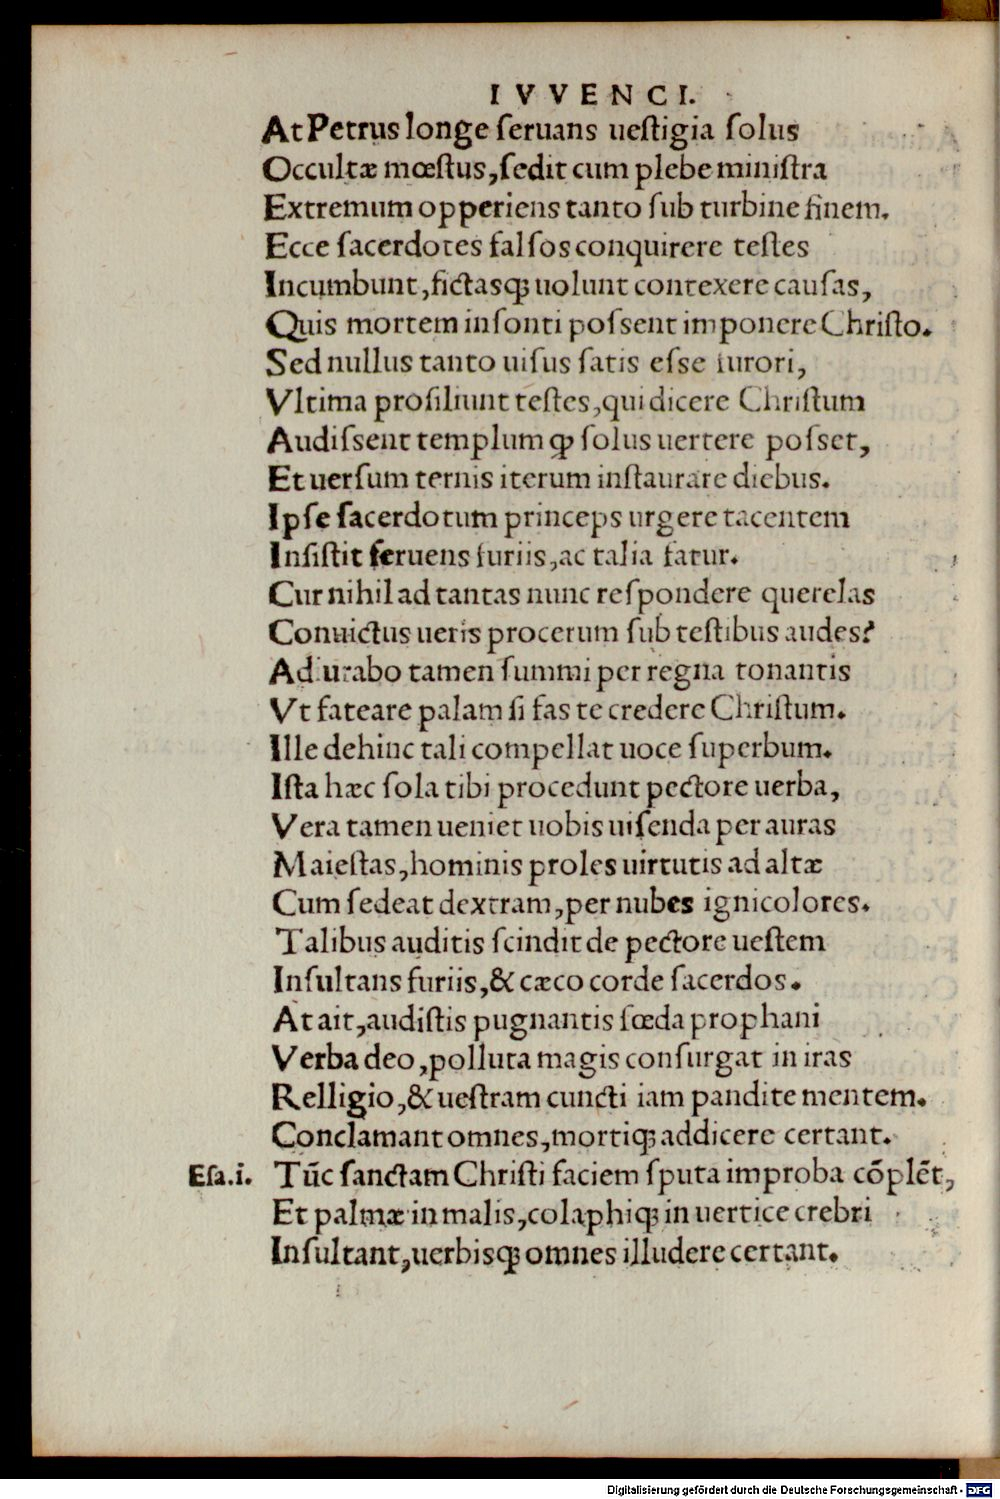 IVVENCI.
At Petrus longe ſeruans ueſtigia ſolus
Occultæ mœſtus, ſedit cum plebe miniſtra
Extremum opperiens tanto ſub turbine finem.
Ecce ſacerdotes falſos conquirere teſtes
Incumbunt, fictasq; uolunt contexere cauſas,
Quis mortem inſonti poſſent imponere Chriſto.
Sed nullus tanto uiſus ſatis eſſe furori,
Vltima proſiliunt teſtes, qui dicere Chriſtum
Audiſſent templum ꝙ ſolus uertere poſſet,
Et uerſum ternis iterum inſtaurare diebus.
Ipſe ſacerdotum princeps urgere tacentem
Inſiſtit feruens furiis, ac talia fatur.
Cur nihil ad tantas nunc reſpondere querelas
Conuictus ueris procerum ſub teſtibus audes?
Adiurabo tamen ſummi per regna tonantis
Vt fateare palam ſi fas te credere Chriſtum.
Ille dehinc tali compellat uoce ſuperbum.
Iſta hæc ſola tibi procedunt pectore uerba,
Vera tamen ueniet uobis uiſenda per auras
Maieſtas, hominis proles uirtutis ad altæ
Cum ſedeat dextram, per nubes ignicolores.
Talibus auditis ſcindit de pectore ueſtem
Inſultans furiis, & cæco corde ſacerdos.
At ait, audiſtis pugnantis fœda prophani
Verba deo, polluta magis conſurgat in iras
Relligio, & ueſtram cuncti iam pandite mentem.
Conclamant omnes, mortiq; addicere certant.
Eſa.i. Tūc ſanctam Chriſti faciem ſputa improba cōplēt,
Et palmæ in malis, colaphiq; in uertice crebri
Inſultant, uerbisq; omnes illudere certant.
Digitalisierung gefördert durch die Deutsche Forschungsgemeinschaft - DFG